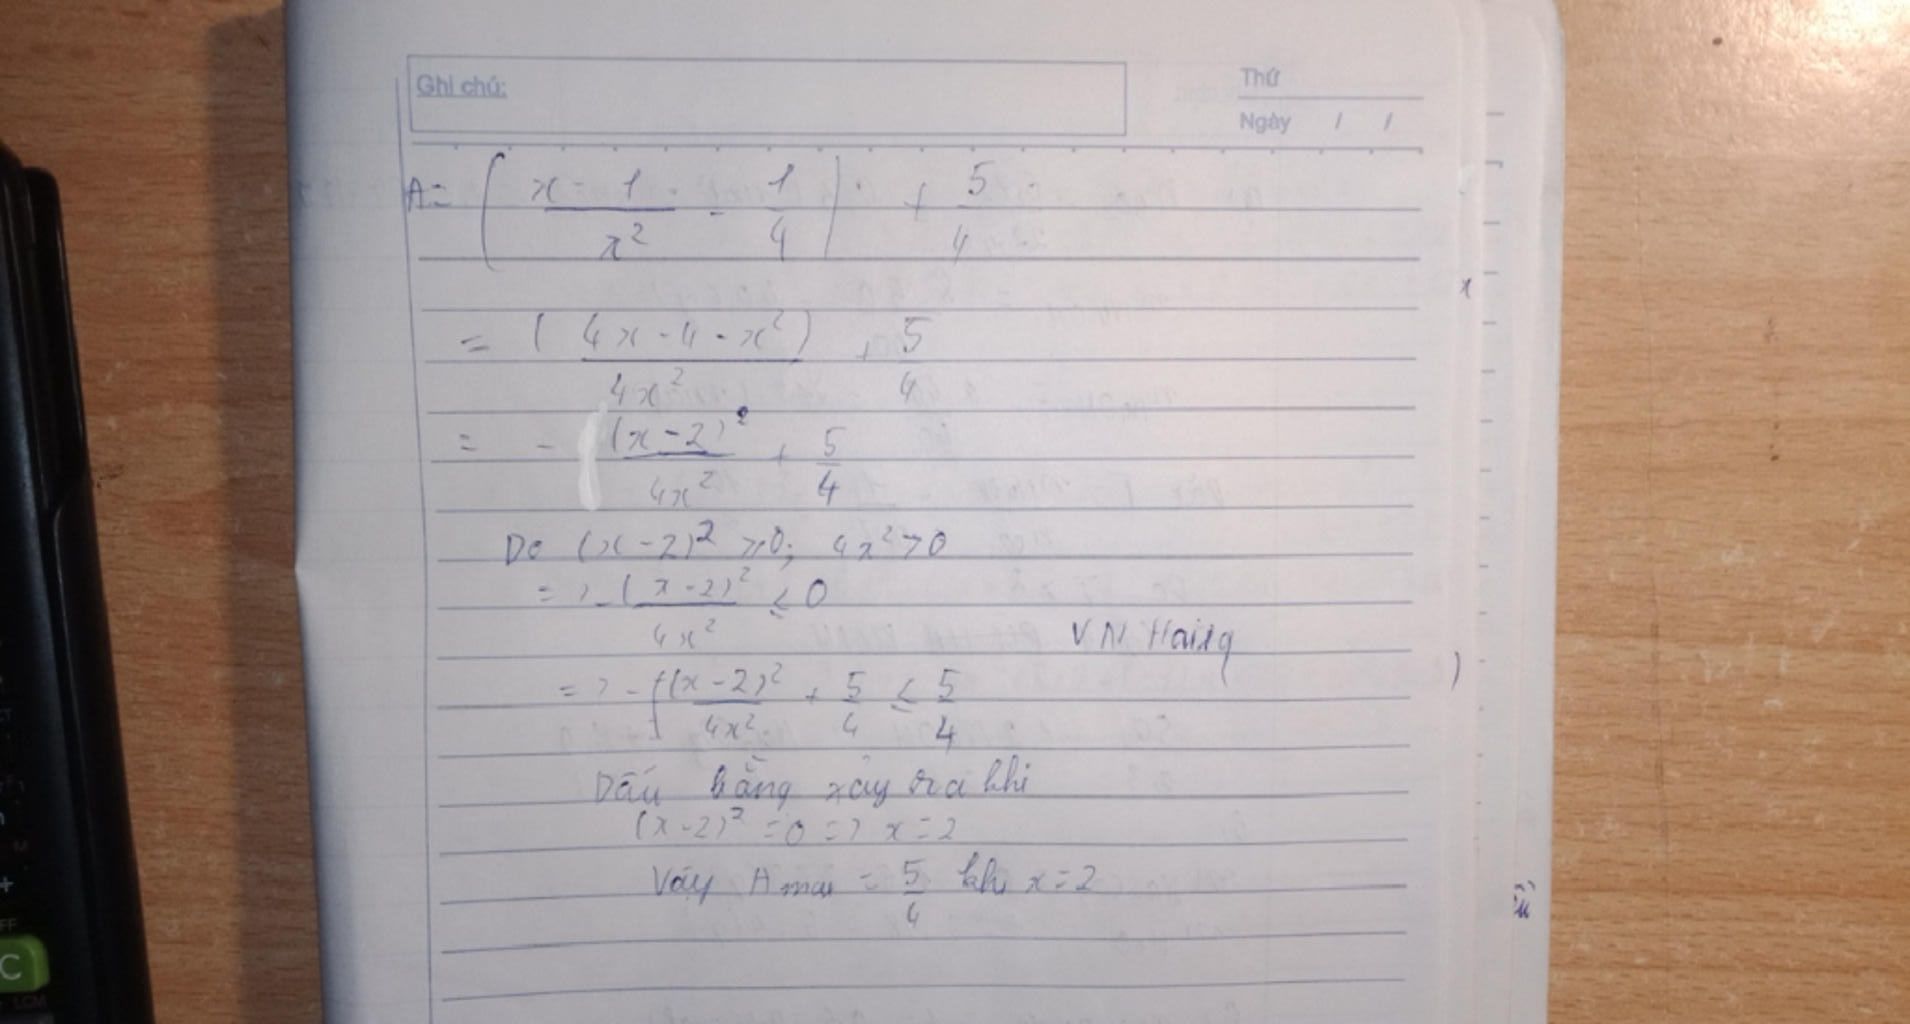 Ghi chú:
Thứ
Ngày / /
A = ( x - 1 / x² - 1/4 ) + 5/4
= ( 4x - 4 - x² ) / 4x² + 5/4
= - (x - 2)² / 4x² + 5/4
Do (x - 2)² ≥ 0; 4x² > 0
=> - (x - 2)² / 4x² ≤ 0
V N Hoàng
=> - (x - 2)² / 4x² + 5/4 ≤ 5/4
Dấu bằng xảy ra khi
(x - 2)² = 0 => x = 2
Vậy A max = 5/4 khi x = 2
C
LCM